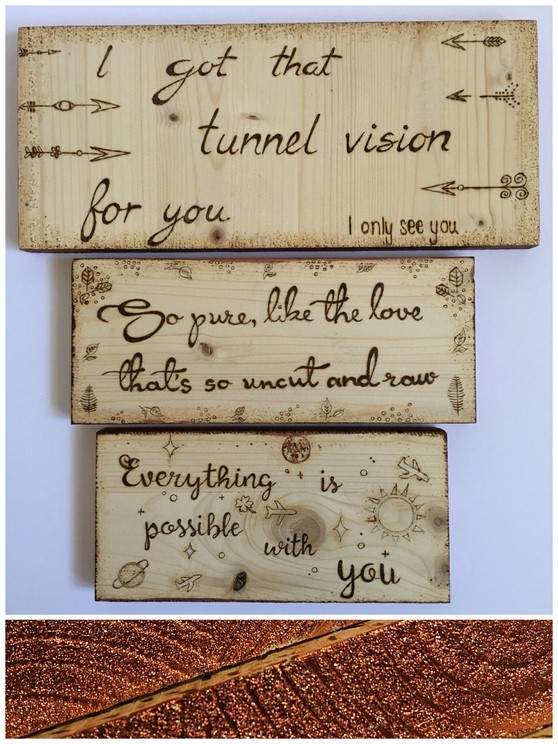 I got that
tunnel vision
for you
I only see you
So pure, like the love
that's so uncut and raw
Everything is
possible
with
you